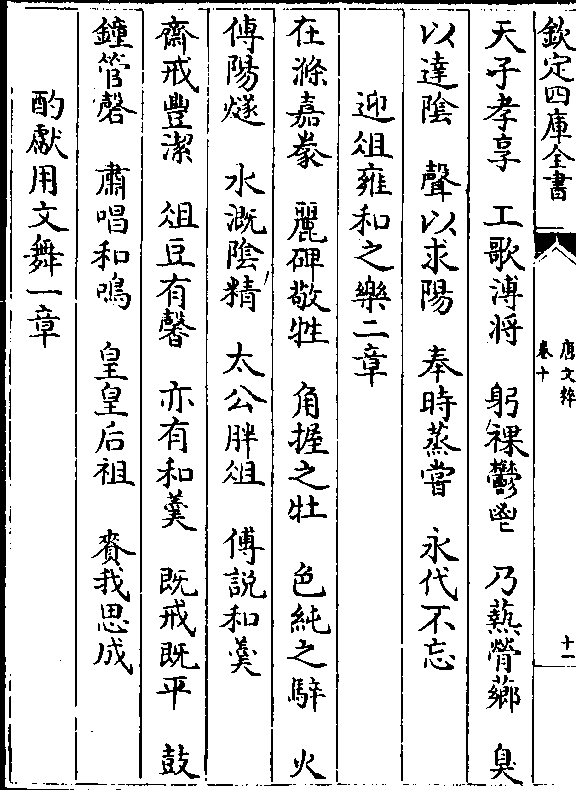 欽定四庫全書
唐文粹
卷十
十一
天子孝享　工歌溥将　躬祼鬱鬯　乃爇膋薌　臭
以達陰　聲以求陽　奉時蒸嘗　永代不忘
迎俎雍和之樂二章
在滌嘉豢　麗碑敬牲　角握之牡　色純之騂　火
傳陽燧　水溉陰精　太公胖俎　傅説和羹
齋戒豐潔　俎豆有馨　亦有和羹　既戒既平　鼓
鐘管磬　肅唱和鳴　皇皇后祖　賚我思成
酌獻用文舞一章